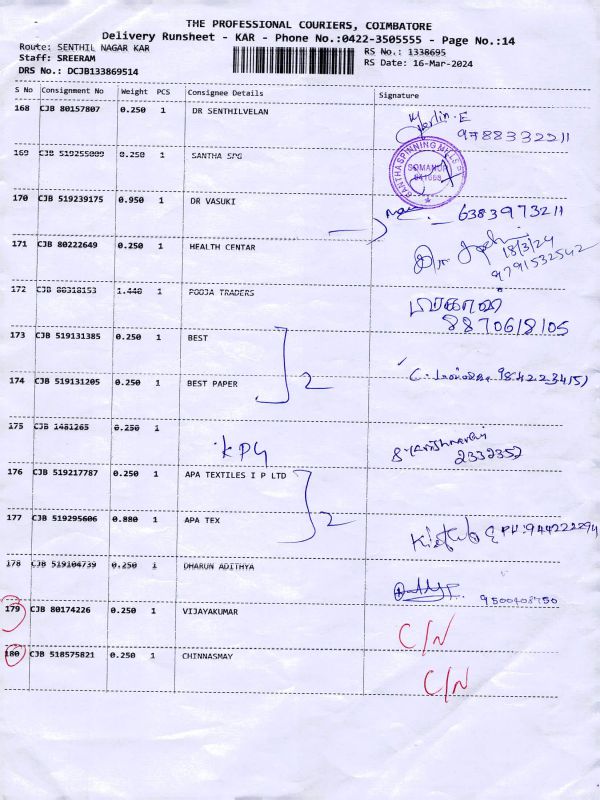 THE PROFESSIONAL COURIERS, COIMBATORE
Delivery Runsheet - KAR - Phone No.:0422-3505555 - Page No.:14
Route: SENTHIL NAGAR KAR
RS No.: 1338695
Staff: SREERAM
RS Date: 16-Mar-2024
DRS No.: DCJB133869514
S No Consignment No Weight PCS Consignee Details Signature
168 CJB 80157807 0.250 1 DR SENTHILVELAN
9788332211
169 CJB 519255009 0.250 1 SANTHA SPG
SANTHA SPINNING MILLS
SOMANUR
170 CJB 519239175 0.950 1 DR VASUKI
6383973211
171 CJB 80222649 0.250 1 HEALTH CENTAR
18/3/24
9791532542
172 CJB 80318153 1.440 1 POOJA TRADERS
8870618105
173 CJB 519131385 0.250 1 BEST
2
174 CJB 519131205 0.250 1 BEST PAPER
175 CJB 1481265 0.250 1
KPG
176 CJB 519217787 0.250 1 APA TEXTILES I P LTD
2
177 CJB 519295606 0.880 1 APA TEX
178 CJB 519104739 0.250 1 DHARUN ADITHYA
9500408750
179 CJB 80174226 0.250 1 VIJAYAKUMAR
C/N
180 CJB 518575821 0.250 1 CHINNASMAY
C/N